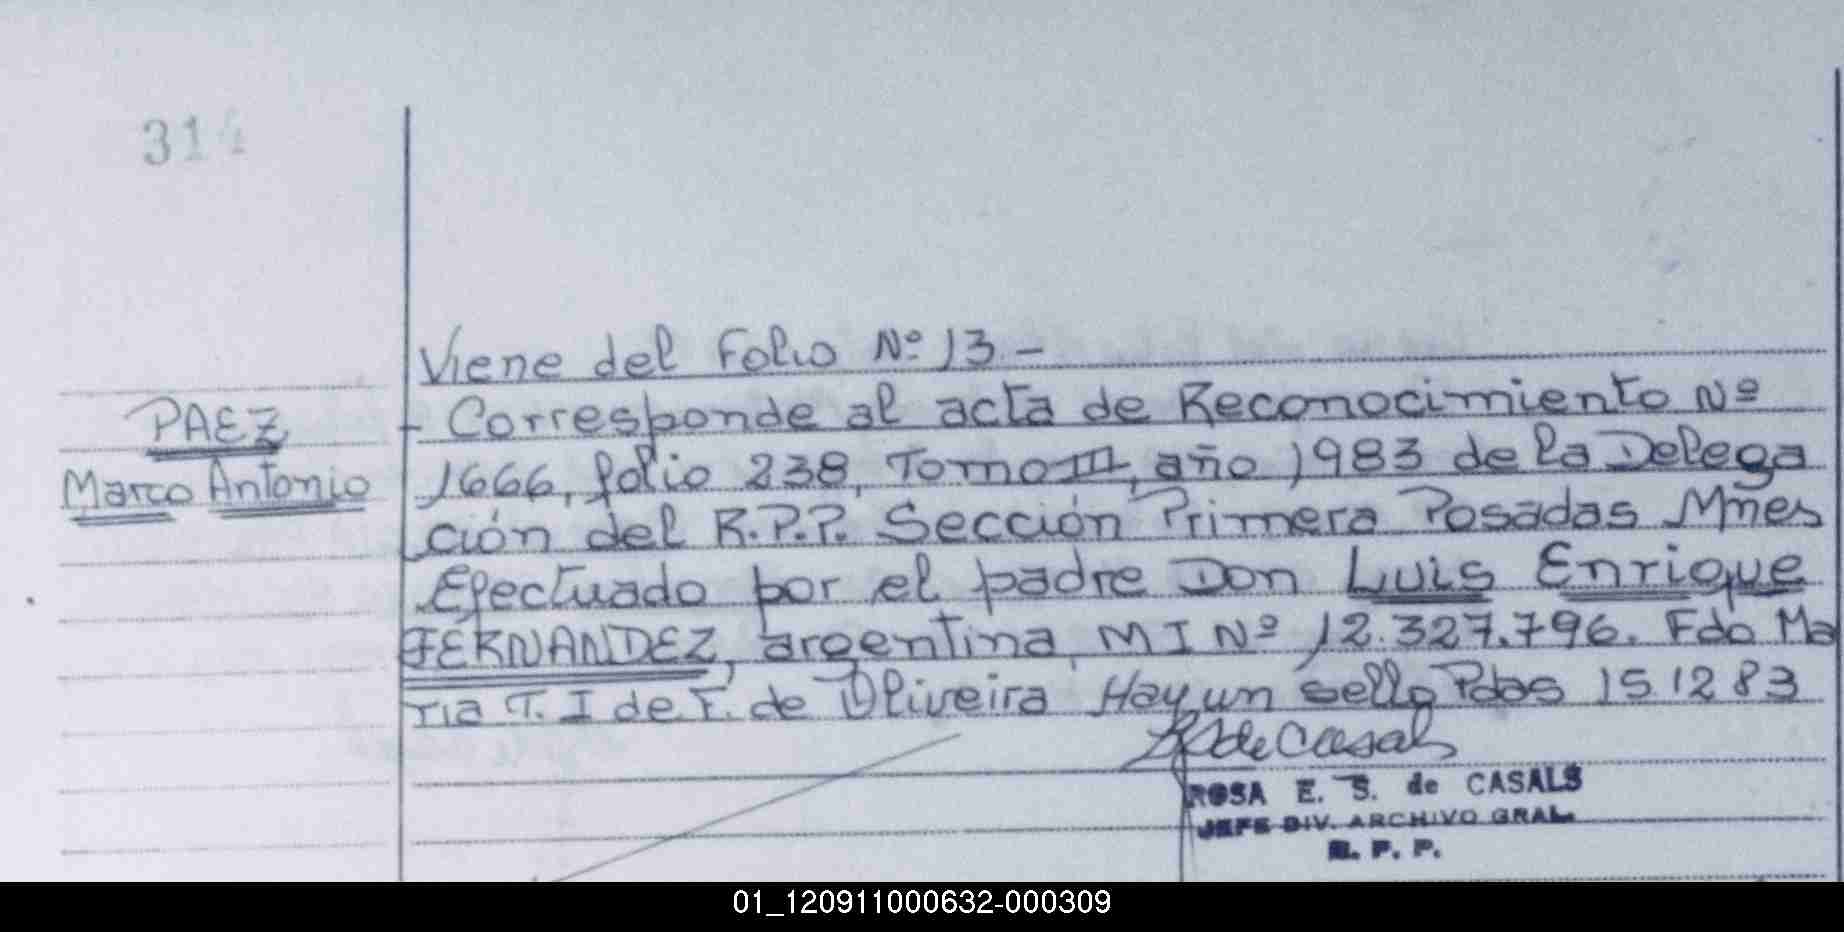 314
Viene del Folio Nº 13 -
PAEZ
Marco Antonio
- Corresponde al acta de Reconocimiento Nº
1666, folio 238, Tomo III, año 1983 de la Delega
ción del R.P.P. Sección Primera Posadas Mnes
Efectuado por el padre Don Luis Enrique
FERNANDEZ, argentina, M I Nº 12.327.796. Fdo Ma
ria T. I de F. de Oliveira Hay un sello Pdas 15 12 83
de Casals
ROSA E. S. de CASALS
JEFE DIV. ARCHIVO GRAL.
R. P. P.
01_120911000632-000309